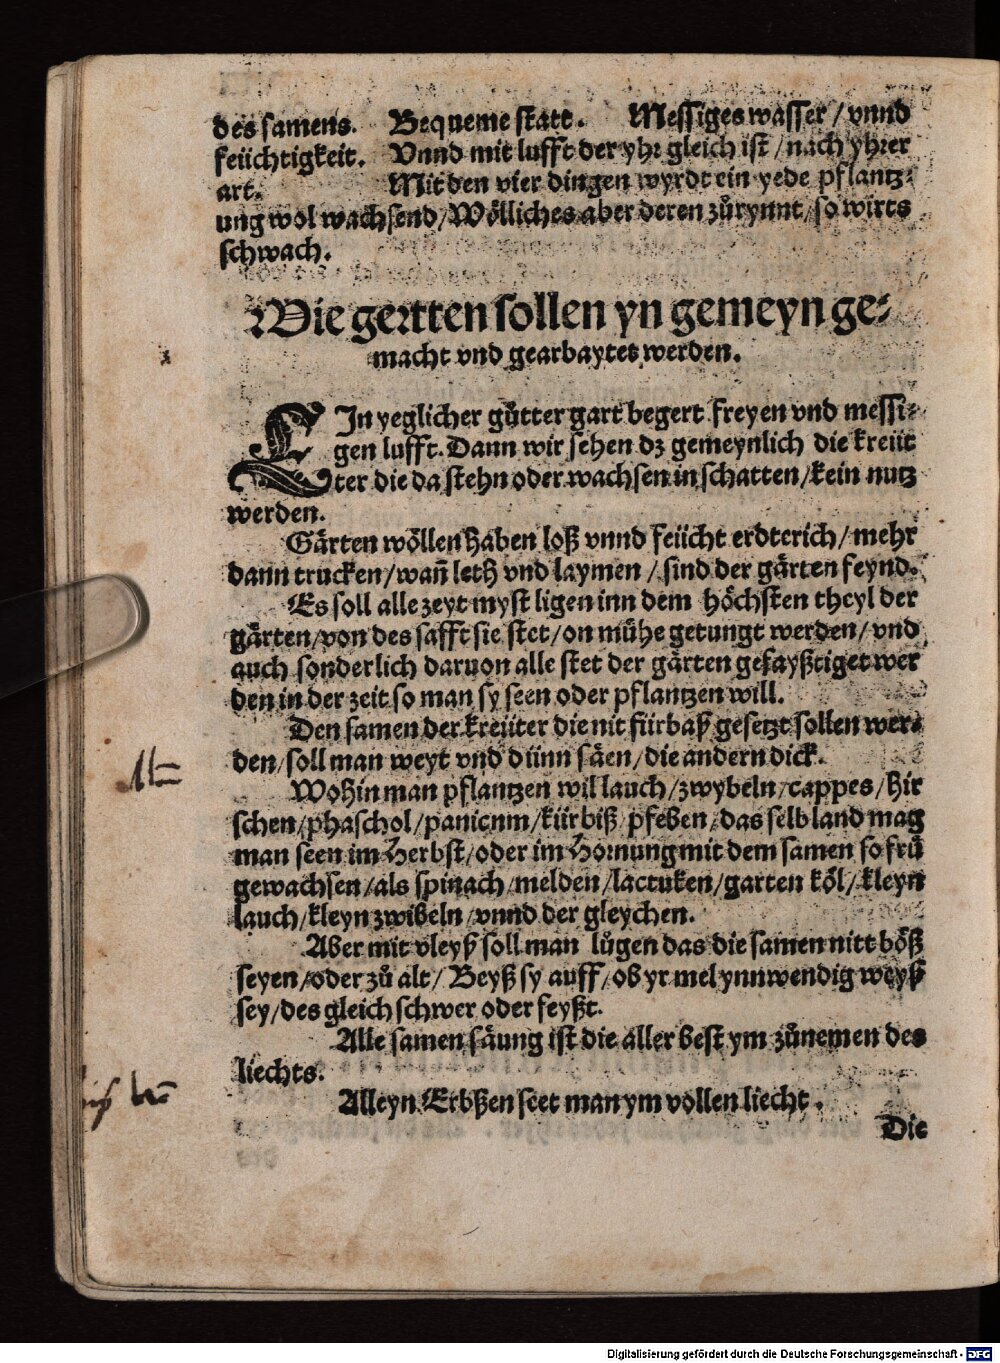 des samens. Bequeme statt. Messiges wasser / vnnd
feüchtigkeit. Vnnd mit lufft der yhr gleich ist / nach yhrer
art. Mit den vier dingen wyrdt ein yede pflantz⸗
ung wol wachsend / Wölliches aber deren zůrynnt / so wirts
schwach.
Wie gertten sollen yn gemeyn ge⸗
macht vnd gearbaytet werden.
EIn yeglicher gůtter gart begert freyen vnd messi⸗
gen lufft. Dann wir sehen dz gemeynlich die kreüt
ter die da stehn oder wachsen in schatten / kein nutz
werden.
Gärten wöllen haben loß vnnd feücht erdterich / mehr
dann trucken / wañ leth vnd laymen / sind der gärten feynd.
Es soll alle zeyt myst ligen inn dem höchsten theyl der
gärten / von des safft sie stet / on mühe getungt werden / vnd
auch sonderlich daruon alle stet der gärten gefayßtiget wer
den in der zeit so man sy seen oder pflantzen will.
Den samen der kreüter die nit fürbaß gesetzt sollen wer⸗
den / soll man weyt vnd dünn säen / die andern dick.
Wohin man pflantzen wil lauch / zwybeln / cappes / hir
schen / phaschol / panicum / kürbiß / pfeben / das selb land mag
man seen im Herbst / oder im Hornung mit dem samen so frů
gewachsen / als spinach / melden / lactuken / garten köl / kleyn
lauch / kleyn zwibeln / vnnd der gleychen.
Aber mit vleyß soll man lůgen das die samen nitt böß
seyen / oder zů alt / Beyß sy auff / ob yr mel ynnwendig weyß
sey / des gleich schwer oder feyßt.
Alle samen säung ist die aller best ym zůnemen des
liechts.
Alleyn Erbßen seet man ym vollen liecht.
Die
Digitalisierung gefördert durch die Deutsche Forschungsgemeinschaft - DFG